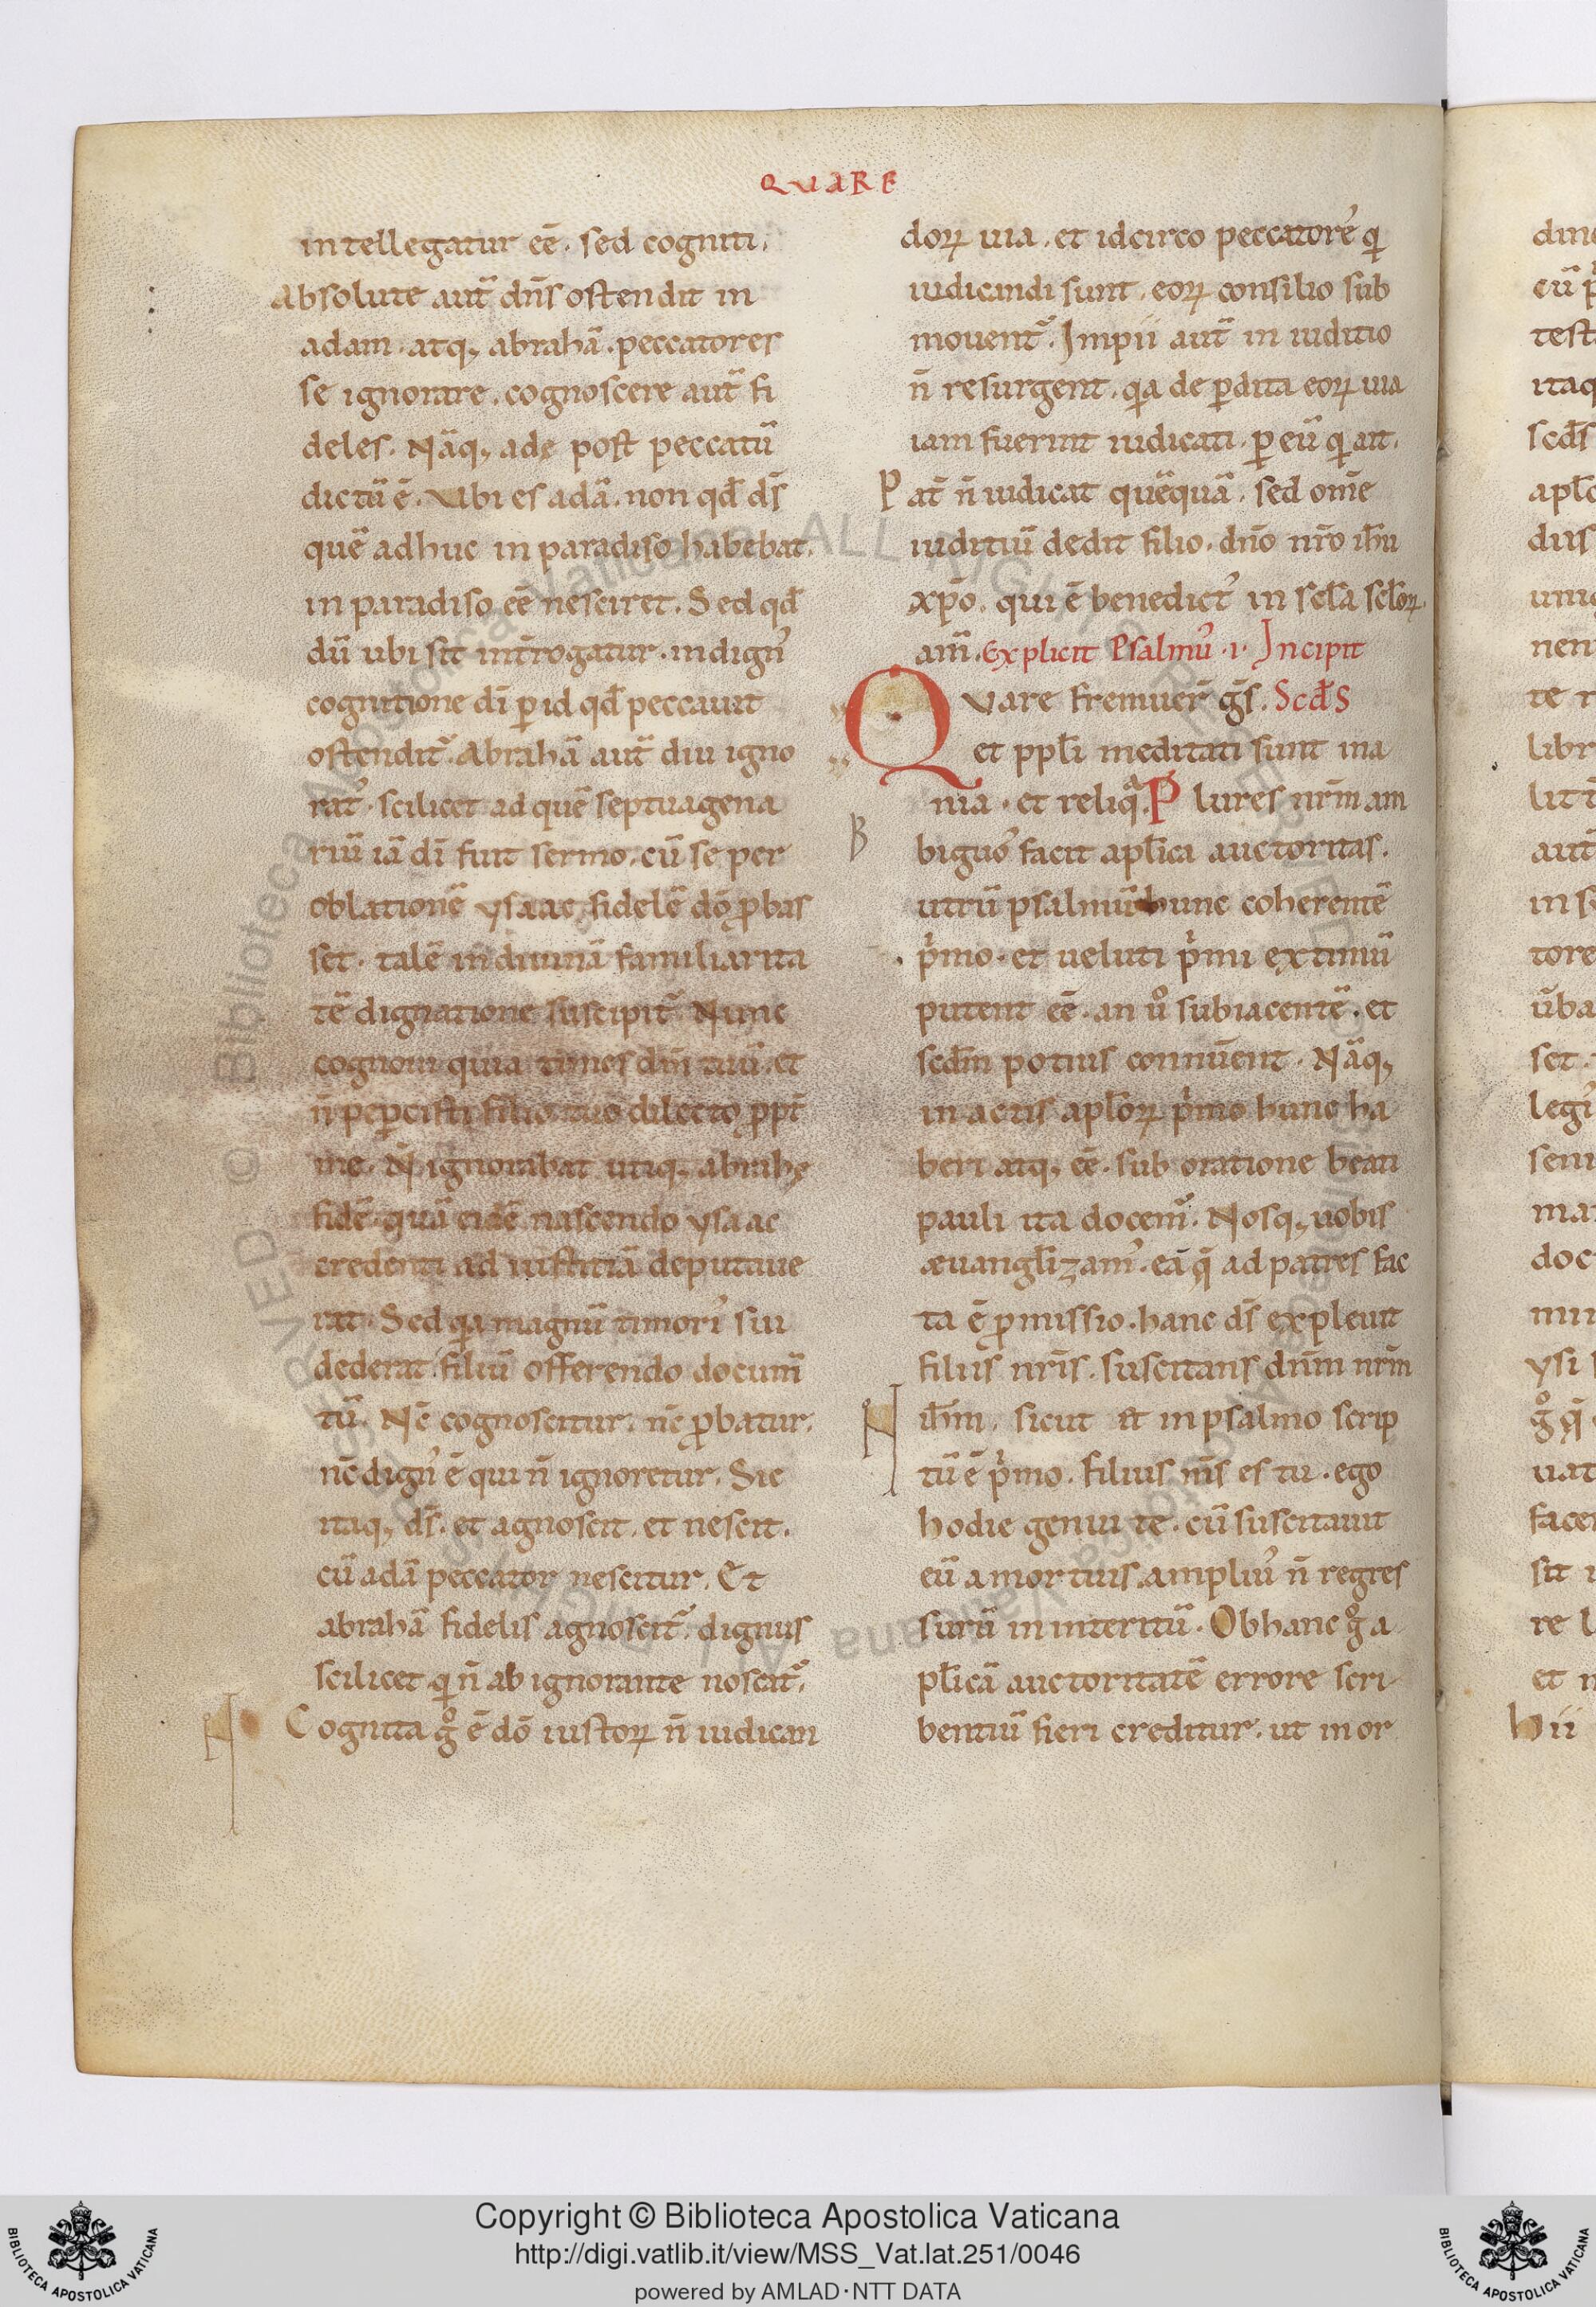 QUARE
intellegatur eē. sed cogniti.
Absolute aut̄ dn̄s ostendit in
adam. atq; abrahā. peccatores
se ignorare. cognoscere aut̄ fi
deles. Nāq; adę post peccatū
dictū ē. Vbi es adā. non qđ dś
quē adhuc in paradiso habebat.
in paradiso eē nesciret. Sed qđ
dū ubi sit int̄rogatur. indignꝰ
cognitione dī ꝑ id qđ peccauit
ostendit᷑. Abrahā aut̄ diu igno
ratꝰ. scilicet ad quē septuagena
riū iā dī fuit sermo. cū se per
oblationē ysaac fidelē dō ꝓbas
set. talē in diuinā familiarita
tē dignatione suscipit᷑. Nunc
cognoui quia times dm̄ tuū. et
n̄ peꝑcisti filio tuo dilecto ꝓpt̄
me. N̄ ignorabat utiq; abrahę
fidē. quā eidē nascendo ysaac
credenti ad iustitiā deputaue
rat. Sed qa magnū timorꝭ sui
dederat filiū offerendo documī
tū. Nc̄ cognoscitur. nc̄ ꝓbatur.
nc̄ dignꝰ ē qui n̄ ignoretur. Sic
itaq; dś. et agnoscit. et nescit.
cū adā peccator nescitur. Et
abrahā fidelis agnoscit᷑. dignus
scilicet qi n̄ ab ignorante noscit᷑.
Cognita gº ē dō iustoꝝ n̄ iudican
doꝝ uia. et idcirco peccatoreꝰ qi
iudicandi sunt. eoꝝ consilio sub
mouent᷑. Impii aut̄ in iuditio
n̄ resurgent. qa de ꝑdita eoꝝ uia
iam fuerint iudicati. ꝑ eū qi ait.
Pat̄ n̄ iudicat quēquā. sed om̄e
iuditiū dedit filio. dn̄o nr̄o ih̄u
xp̄o. qui ē benedictꝰ in scl̄a scl̄oꝝ.
am̄. Explicit Psalmꝰ .I. Incipit
Quare fremuer̄ gn̄s. Scđs
et ppl̄i meditati sunt ina
nia. et reliqa. Plures nr̄m am
biguoꝰ facit apl̄ica auctoritas.
B
utrū psalmū hunc coherentē
pi̇mo. et ueluti pi̇mi extimū
putent eē. an uº subiacentē. et
scdm̄ potius connūent. Nāq;
in actis apl̄oꝝ pi̇mo hunc ha
beri atq; eē. sub oratione beati
pauli ita docemꝰ. Nosq; uobis
æuangl̄izamꝰ. eā q̄ ad patres fac
ta ē ꝓmissio. hanc dś expleuit
filiis nr̄is. suscitans dnm̄ nr̄m
ih̄m. sicut et in psalmo scrip
tū ē pi̇mo. filius m̄s es tu. ego
hodie genui te. cū suscitauit
eū a mortuis. ampliuꝰ n̄ regres
surū in interitū. Ob hanc gº a
pl̄icā auctoritatē errore scri
bentiū fieri creditur. ut in or
Copyright © Biblioteca Apostolica Vaticana
http://digi.vatlib.it/view/MSS_Vat.lat.251/0046
powered by AMLAD·NTT DATA
BIBLIOTECA APOSTOLICA VATICANA
BIBLIOTECA APOSTOLICA VATICANA